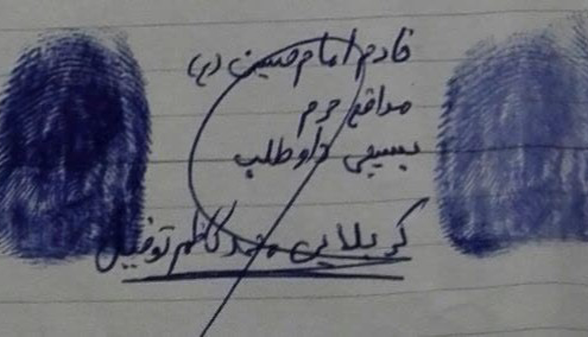 خادم امام حسین (ع)
مدافع حرم
بسیجی داوطلب
کربلایی محمد کاظم توفیقی